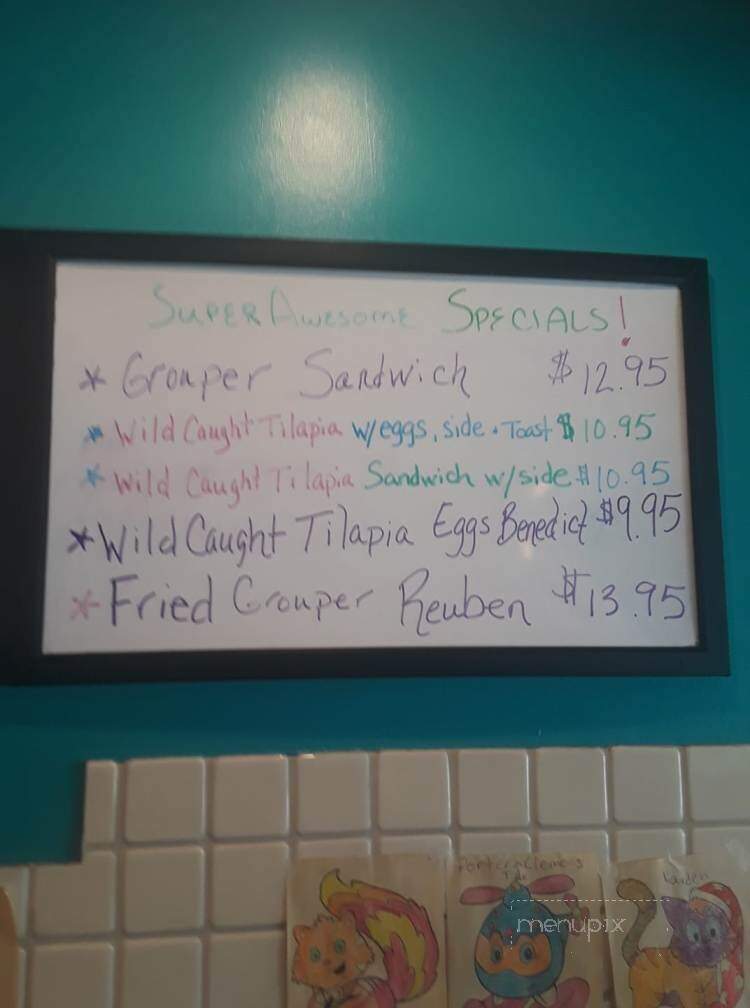 SUPER Awesome SPECIALS!
* Grouper Sandwich $12.95
* Wild Caught Tilapia w/eggs, side • Toast $10.95
* Wild Caught Tilapia Sandwich w/side $10.95
* Wild Caught Tilapia Eggs Benedict $9.95
* Fried Grouper Reuben $13.95
menupix